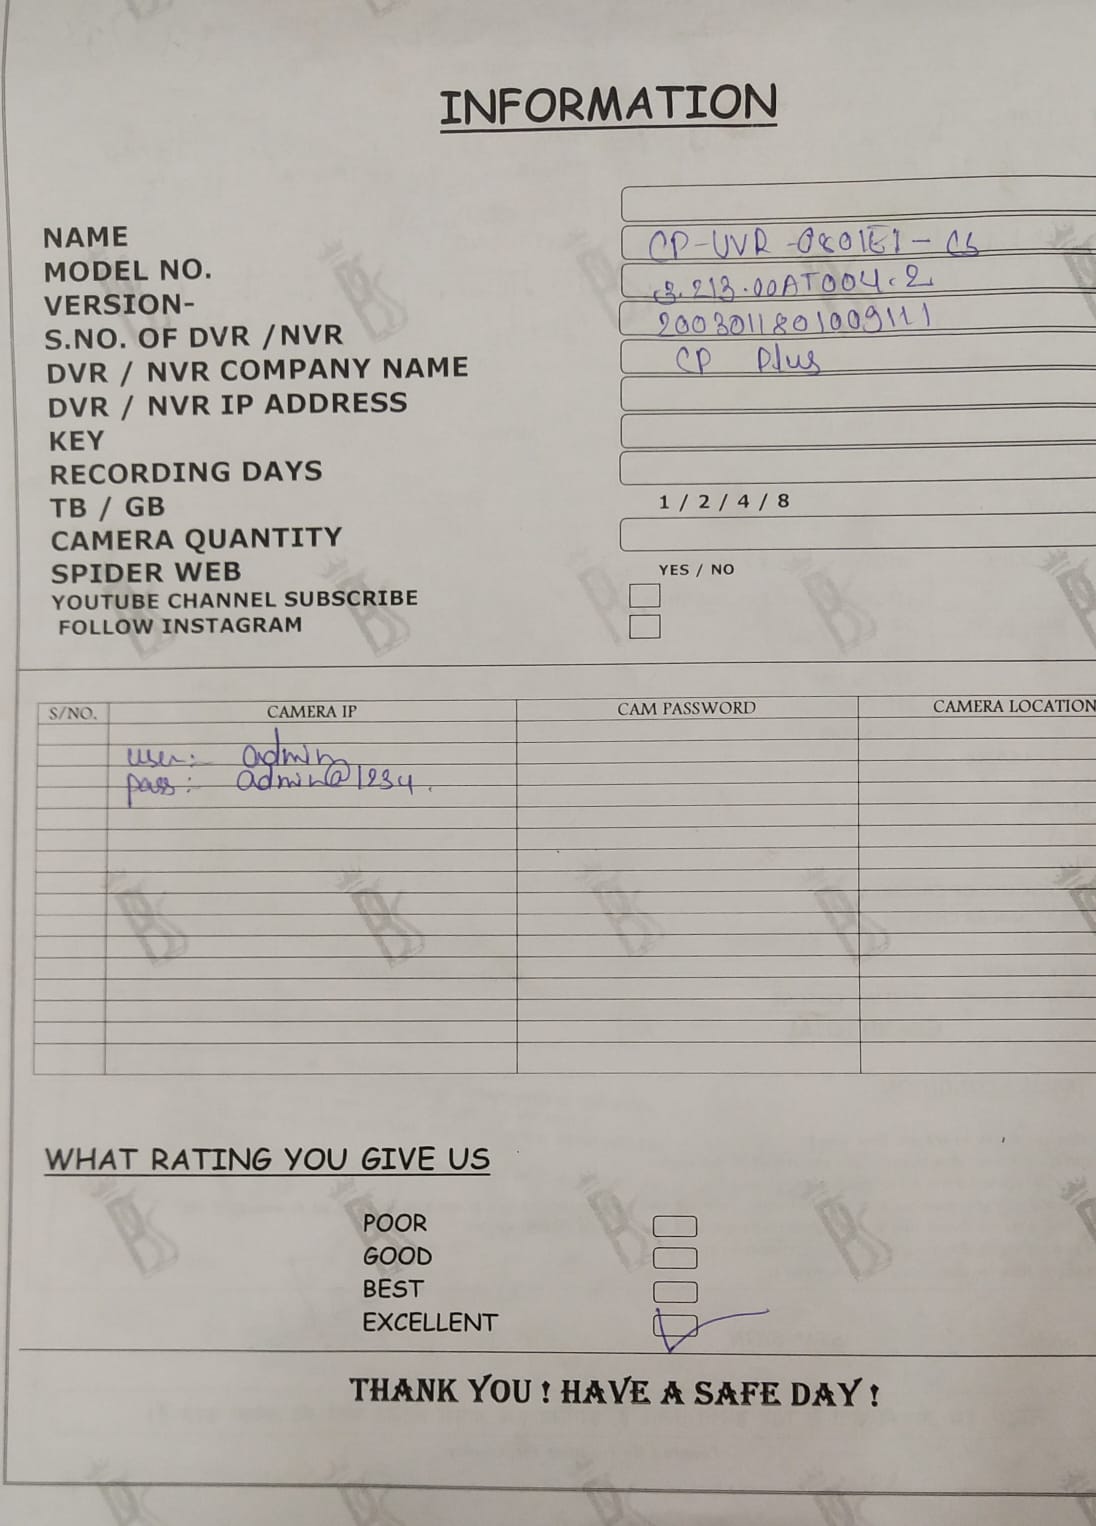 INFORMATION
NAME
MODEL NO. CP-UVR-0801E1-CS
VERSION- 3.213.00AT004.2
S.NO. OF DVR / NVR
DVR / NVR COMPANY NAME CP Plus
DVR / NVR IP ADDRESS
KEY
RECORDING DAYS
TB / GB 1 / 2 / 4 / 8
CAMERA QUANTITY
SPIDER WEB YES / NO
YOUTUBE CHANNEL SUBSCRIBE
FOLLOW INSTAGRAM
S/NO. CAMERA IP CAM PASSWORD CAMERA LOCATION
user:- admin
pass:- admin@1234.
WHAT RATING YOU GIVE US
POOR
GOOD
BEST
EXCELLENT
THANK YOU ! HAVE A SAFE DAY !